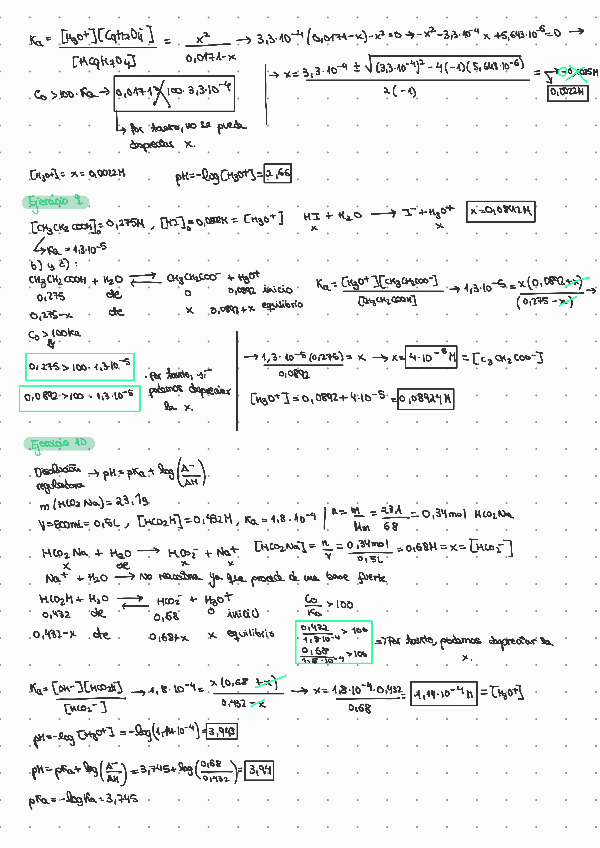 Ka = [H3O+][C9H7O4-] / [HC9H7O4] = x² / 0,0171-x → 3,3·10⁻⁴ (0,0171-x)-x²=0 → -x²-3,3·10⁻⁴ x +5,643·10⁻⁶=0 →
→ x = 3,3·10⁻⁴ ± √((3,3·10⁻⁴)² - 4(-1)(5,643·10⁻⁶)) / 2(-1) =
0,0022M
C0 > 100·Ka → 0,0171 > 100·3,3·10⁻⁴
↳ Por tanto, no se puede
despreciar x.
[H3O+] = x = 0,0022M pH=-log[H3O+]= 2,66
Ejercicio 9
[CH3CH2COOH]0=0,275M, [HI]0=0,0892M = [H3O+] HI + H2O → I- + H3O+ x=0,0892M
x x
↳ Ka = 1,3·10⁻⁵
b) y 2):
CH3CH2COOH + H2O ⇌ CH3CH2COO- + H3O+
0,275 de 0 0,0892 inicio
0,275-x de x 0,0892+x equilibrio
Ka = [H3O+][CH3CH2COO-] / [CH3CH2COOH] → 1,3·10⁻⁵ = x(0,0892+x) / (0,275-x) →
C0 > 100Ka
0,275 > 100·1,3·10⁻⁵
0,0892 > 100·1,3·10⁻⁵
· Por tanto, sí
podemos despreciar
la x.
→ 1,3·10⁻⁵(0,275) / 0,0892 = x → x = 4·10⁻⁵M = [C3CH2COO-]
[H3O+] = 0,0892 + 4·10⁻⁵ = 0,08924M
Ejercicio 10
Disolución → pH = pKa + log(A-/AH)
reguladora
m(HCO2Na) = 23,1g
V=500mL = 0,5L, [HCO2H] = 0,432M, Ka = 1,8·10⁻⁴ | n = m/Mm = 23,1/68 = 0,34mol HCO2Na
HCO2Na + H2O → HCO2- + Na+ [HCO2Na] = n/V = 0,34mol/0,5L = 0,68M = x = [HCO2-]
x de x x
Na+ + H2O → No reacciona ya que procede de una base fuerte
HCO2H + H2O ⇌ HCO2- + H3O+
0,432 de 0,68 0 inicio
0,432-x de 0,68+x x equilibrio
C0/Ka > 100
0,432 / 1,8·10⁻⁴ > 100
0,68 / 1,8·10⁻⁴ > 100
=> Por tanto, podemos despreciar la
x.
Ka = [OH-][HCO2H] / [HCO2-] → 1,8·10⁻⁴ = x(0,68+x) / 0,432-x → x = 1,8·10⁻⁴·0,432 / 0,68 = 1,14·10⁻⁴M = [H3O+]
pH=-log[H3O+] = -log(1,14·10⁻⁴) = 3,943
pH = pKa + log(A-/AH) = 3,745 + log(0,68/0,432) = 3,94
pKa = -logKa = 3,745